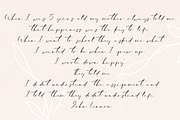 When I was 5 years old my mother always told me
that happiness was the key to life.
When I went to school they asked me what
I wanted to be when I grew up.
I wrote down happy.
They told me
I didn't understand the assignment and
I told them they didn't understand life.
John Lennon